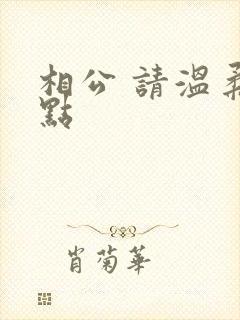 相公 請溫柔
點
肖菊華